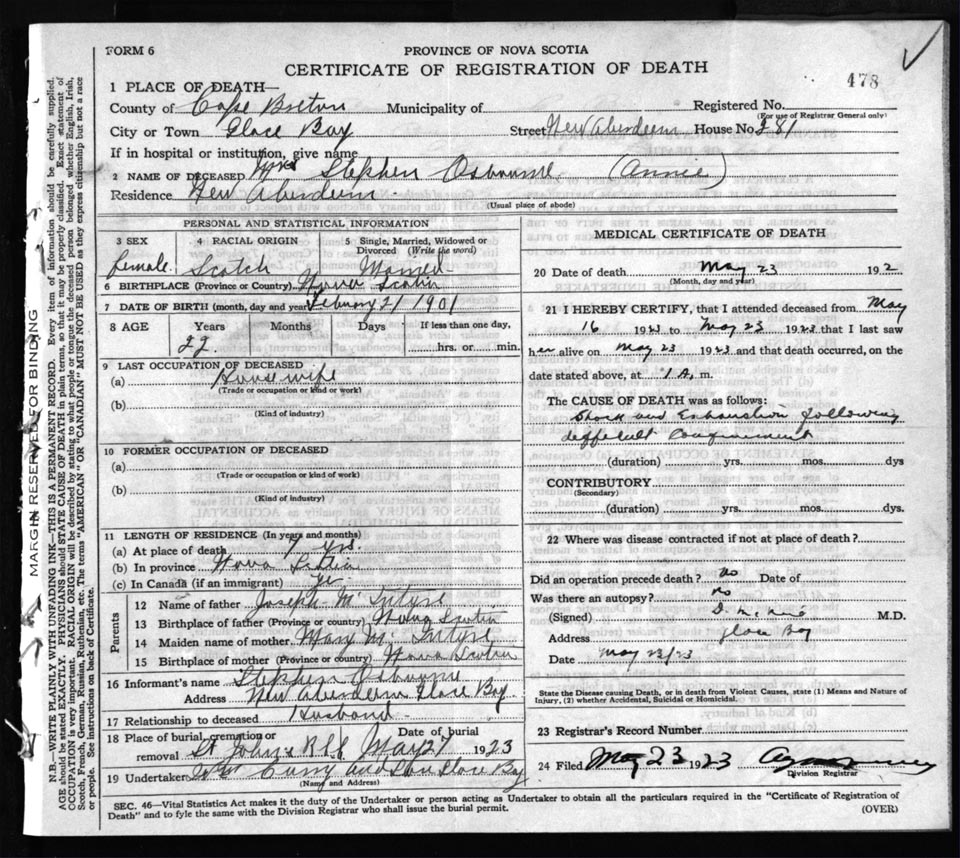 FORM 6
PROVINCE OF NOVA SCOTIA
CERTIFICATE OF REGISTRATION OF DEATH
478
1 PLACE OF DEATH—
County of Cape Breton Municipality of Registered No.
(For use of Registrar General only)
City or Town Glace Bay Street New Aberdeen House No 81
If in hospital or institution, give name
2 NAME OF DECEASED Mrs Stephen Osbourne (Annie)
Residence New Aberdeen
(Usual place of abode)
PERSONAL AND STATISTICAL INFORMATION
3 SEX 4 RACIAL ORIGIN 5 Single, Married, Widowed or Divorced (Write the word)
female Scotch Married
6 BIRTHPLACE (Province or Country) Nova Scotia
7 DATE OF BIRTH (month, day and year) February 21 1901
8 AGE Years Months Days If less than one day,
22 hrs. or min.
9 LAST OCCUPATION OF DECEASED
(a) House wife
(Trade or occupation or kind or work)
(b)
(Kind of industry)
10 FORMER OCCUPATION OF DECEASED
(a)
(Trade or occupation or kind of work)
(b)
(Kind of industry)
11 LENGTH OF RESIDENCE (In years and months)
(a) At place of death yrs
(b) In province Nova Scotia
(c) In Canada (if an immigrant)
Parents
12 Name of father Joseph McIntyre
13 Birthplace of father (Province or country) Nova Scotia
14 Maiden name of mother Mary McIntyre
15 Birthplace of mother (Province or country) Nova Scotia
16 Informant's name Stephen Osbourne
Address New Aberdeen Glace Bay
17 Relationship to deceased Husband
18 Place of burial, cremation or removal St John's Date of burial May 1923
19 Undertaker Curry and Son Glace Bay
(Name and Address)
MEDICAL CERTIFICATE OF DEATH
20 Date of death May 23 192
(Month, day and year)
21 I HEREBY CERTIFY, that I attended deceased from May
16 1923 to May 23 1923 that I last saw
her alive on May 23 1923 and that death occurred, on the
date stated above, at 1 A. m.
The CAUSE OF DEATH was as follows:
Shock and Exhaustion following
difficult Confinement
(duration) yrs. mos. dys
CONTRIBUTORY
(Secondary)
(duration) yrs. mos. dys.
22 Where was disease contracted if not at place of death?
Did an operation precede death? no Date of
Was there an autopsy? no
(Signed) M.D.
Address Glace Bay
Date May 23/23
State the Disease causing Death, or in death from Violent Causes, state (1) Means and Nature of Injury, (2) whether Accidental, Suicidal or Homicidal.
23 Registrar's Record Number
24 Filed May 23 1923
Division Registrar
SEC. 46—Vital Statistics Act makes it the duty of the Undertaker or person acting as Undertaker to obtain all the particulars required in the "Certificate of Registration of
Death" and to fyle the same with the Division Registrar who shall issue the burial permit.
(OVER)
MARGIN RESERVED FOR BINDING
N.B.—WRITE PLAINLY WITH UNFADING INK—THIS IS A PERMANENT RECORD. Every item of information should be carefully supplied.
AGE should be stated EXACTLY. PHYSICIANS should STATE CAUSE OF DEATH in plain terms, so that it may be properly classified. Exact statement of
OCCUPATION is very important. RACIAL ORIGIN will be described by stating to what people or tongue the deceased person belonged, whether English, Irish,
Scotch, French, German, Russian, Ruthenian, etc. The terms "AMERICAN" or "CANADIAN" MUST NOT BE USED as they express citizenship but not a race
or people. See instructions on back of Certificate.